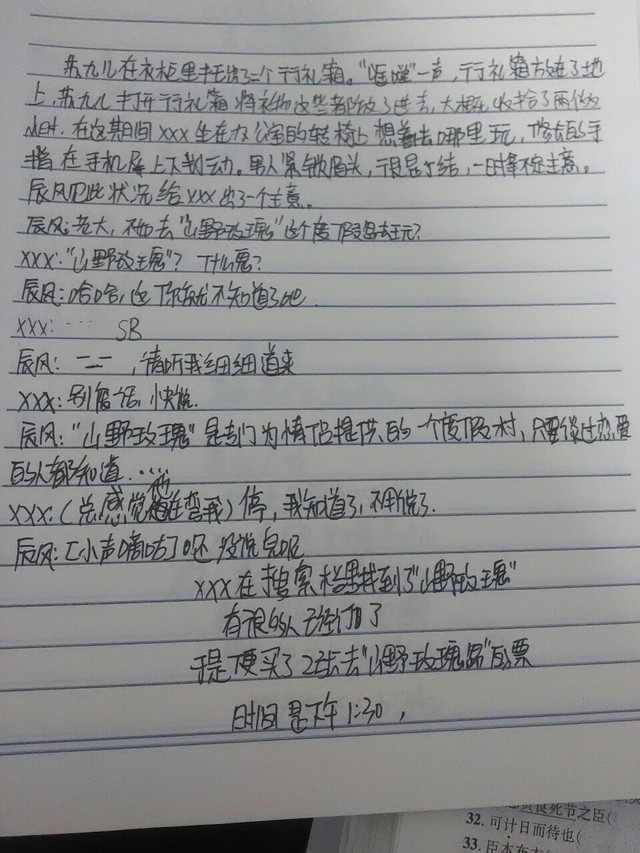 苏九儿在衣柜里找出了一个行礼箱。“哐噹”一声，行礼箱放在了地
上，苏九儿打开行礼箱将衣物这些都放了进去，大概收拾了两个
小时。在这期间XXX坐在办公室的转椅上想着去哪里玩，修长的手
指在手机屏上下划动。男人紧皱眉头，于是纠结，一时拿不定主意。
辰风见此状况给XXX出了一个主意。
辰风：老大，不如去“山野玫瑰”这个度假岛去玩？
XXX：“山野玫瑰”？什么鬼？
辰风：哈哈，这你就不知道了吧
XXX：…… SB
辰风：一一，请听我细细道来
XXX：别废话，快说．
辰风：“山野玫瑰”是专门为情侣提供的一个度假村，只要谈过恋爱
的人都知道……
XXX：（总感觉他在骂我）停，我知道了，不用说了．
辰风：[小声嘀咕]呸 没说完呢
XXX在搜索栏里找到了“山野玫瑰”
有很多人已经订了
于是便买了2张去“山野玫瑰岛”的票
时间是下午1:30，
良死节之臣(
32. 可计日而待也(
33. 臣本布衣